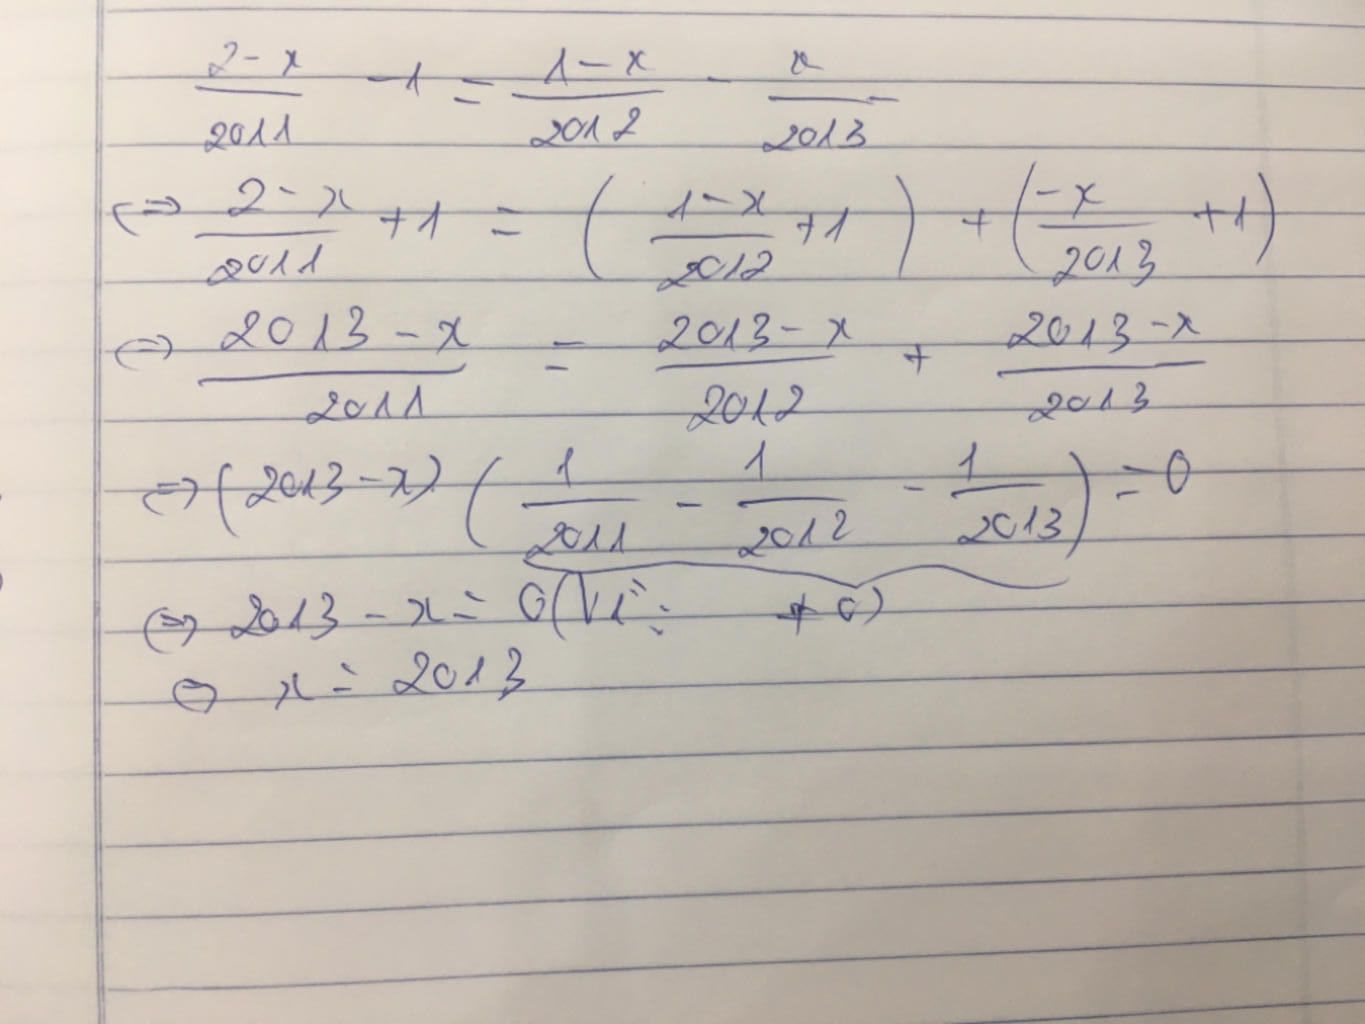 (2-x)/2011 -1 = (1-x)/2012 - x/2013
⇔ (2-x)/2011 +1 = ((1-x)/2012 +1) + (-x/2013 +1)
⇔ (2013-x)/2011 = (2013-x)/2012 + (2013-x)/2013
⇔ (2013-x) (1/2011 - 1/2012 - 1/2013) = 0
⇔ 2013 - x = 0 (Vì ≠ 0)
⇔ x = 2013